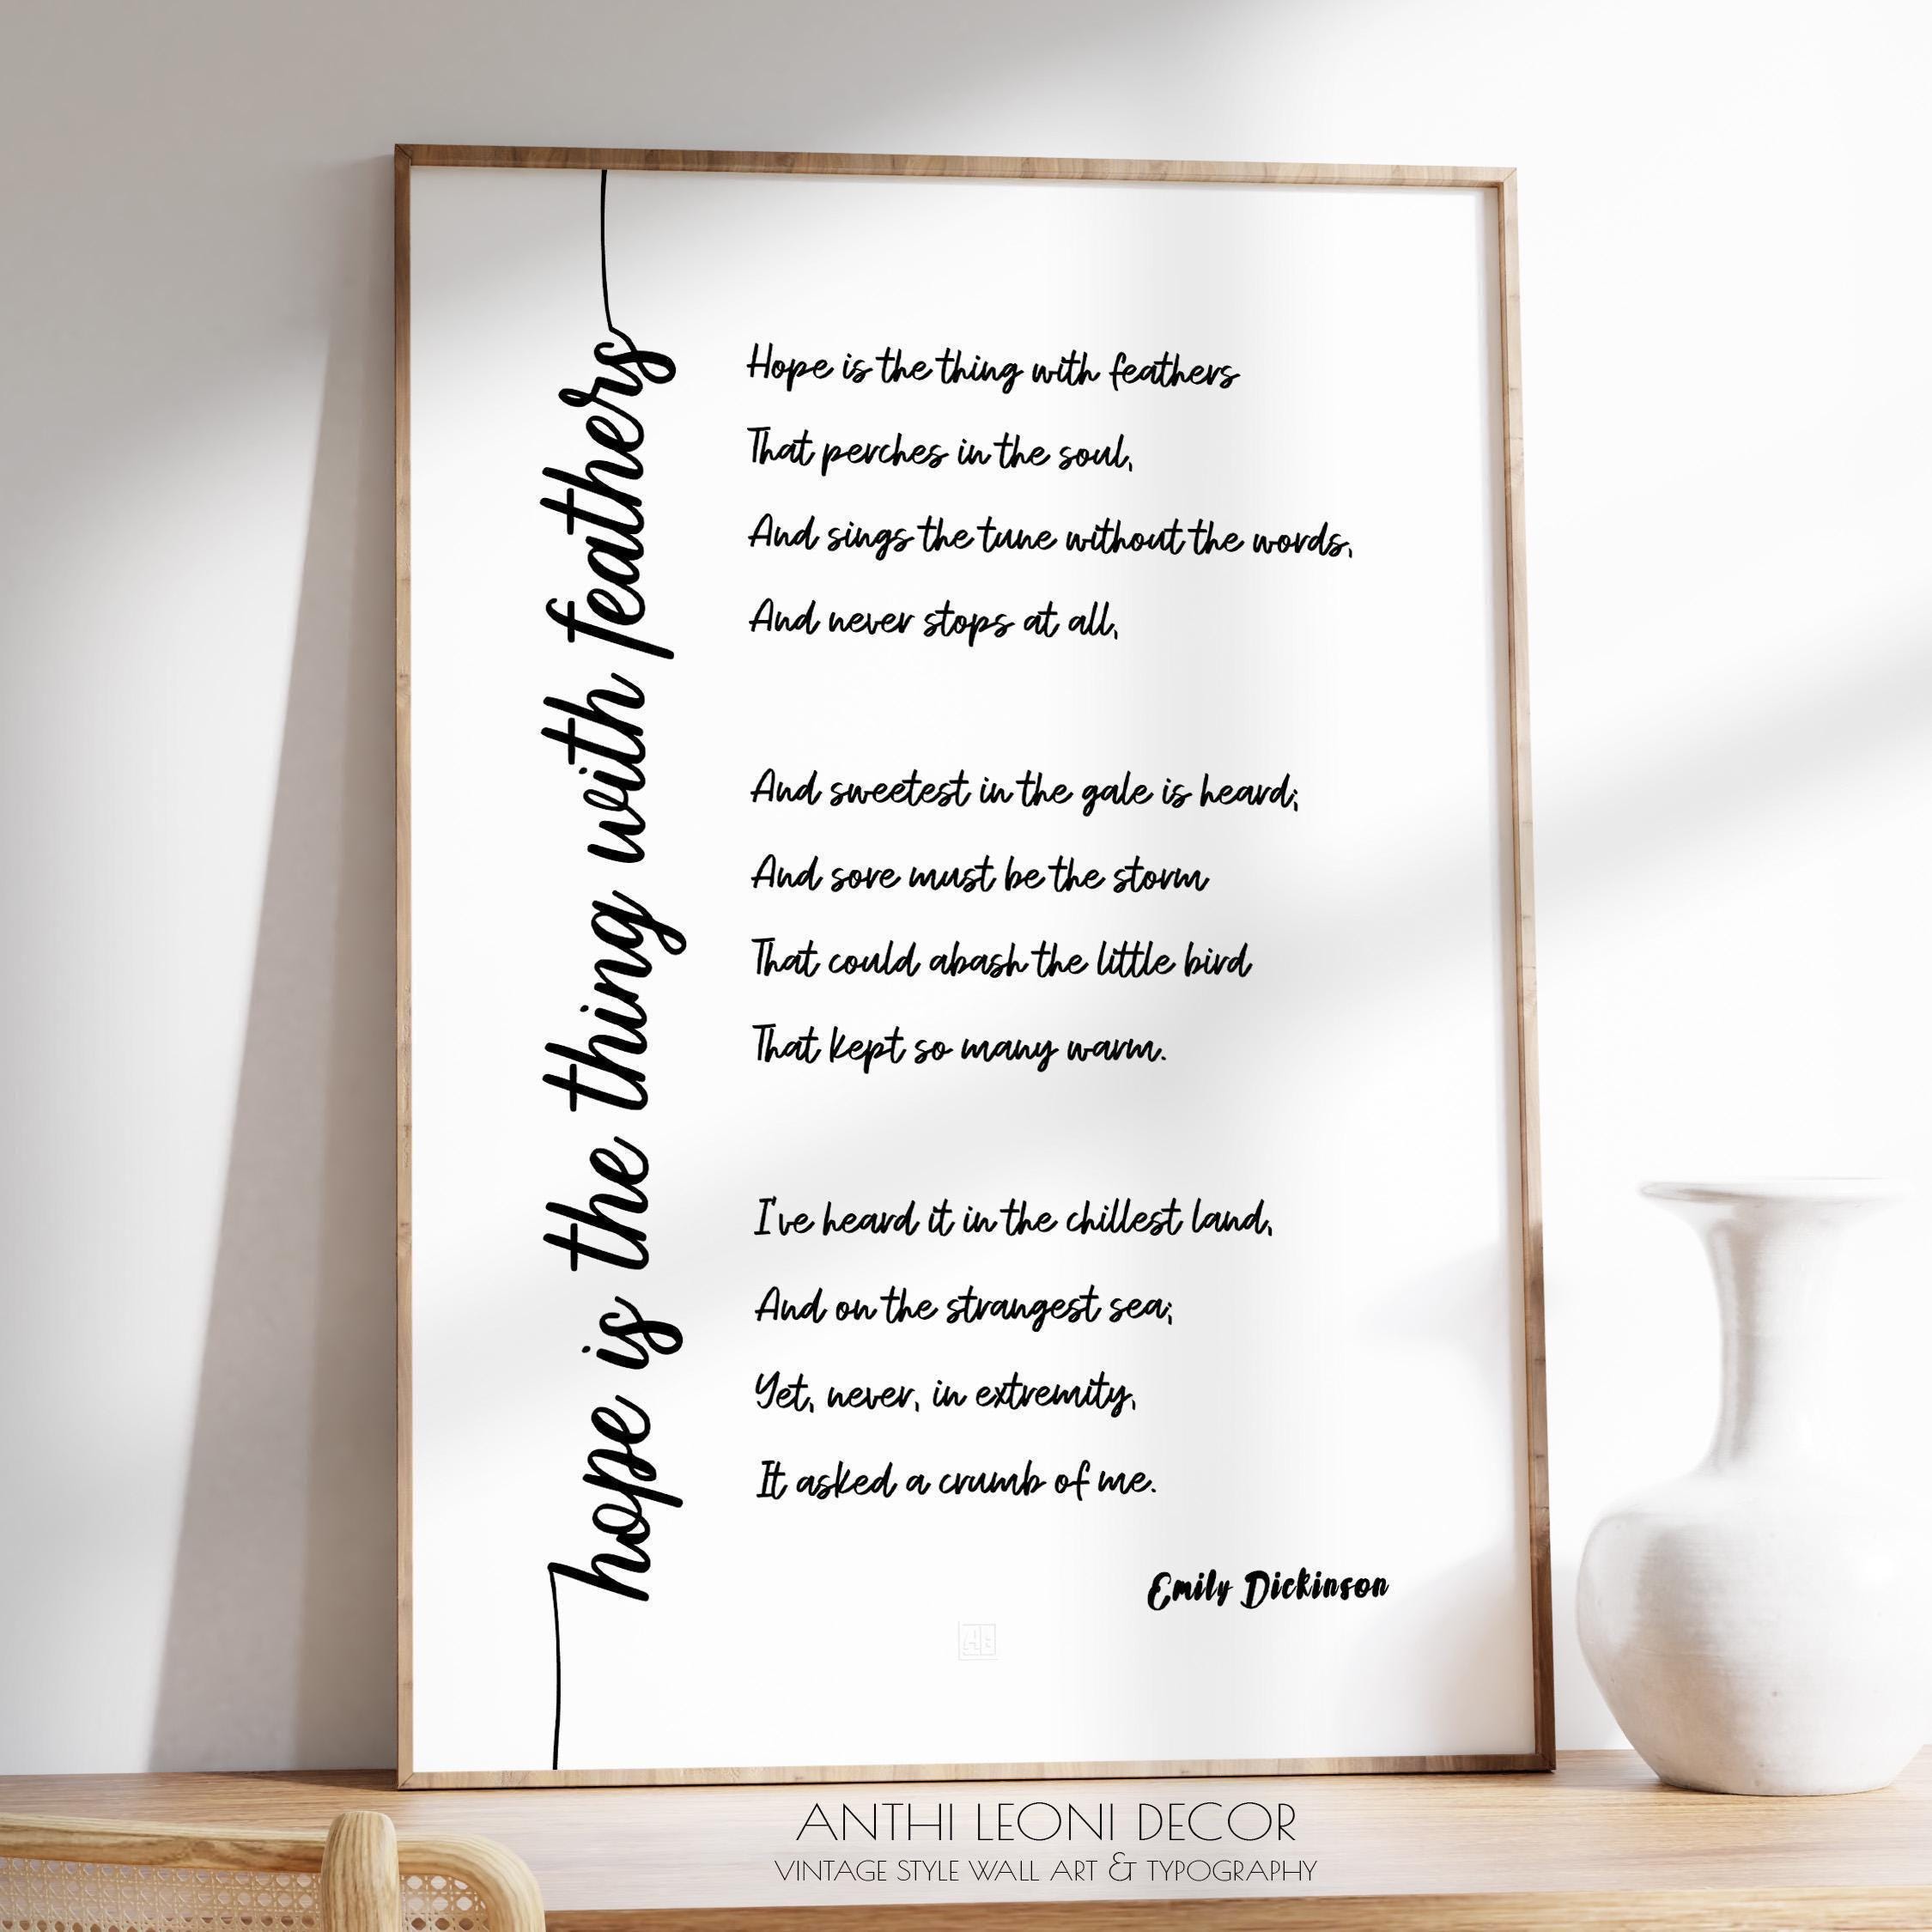 hope is the thing with feathers
Hope is the thing with feathers
That perches in the soul,
And sings the tune without the words,
And never stops at all,
And sweetest in the gale is heard;
And sore must be the storm
That could abash the little bird
That kept so many warm.
I've heard it in the chillest land,
And on the strangest sea;
Yet, never, in extremity,
It asked a crumb of me.
Emily Dickinson
ANTHI LEONI DECOR
VINTAGE STYLE WALL ART & TYPOGRAPHY